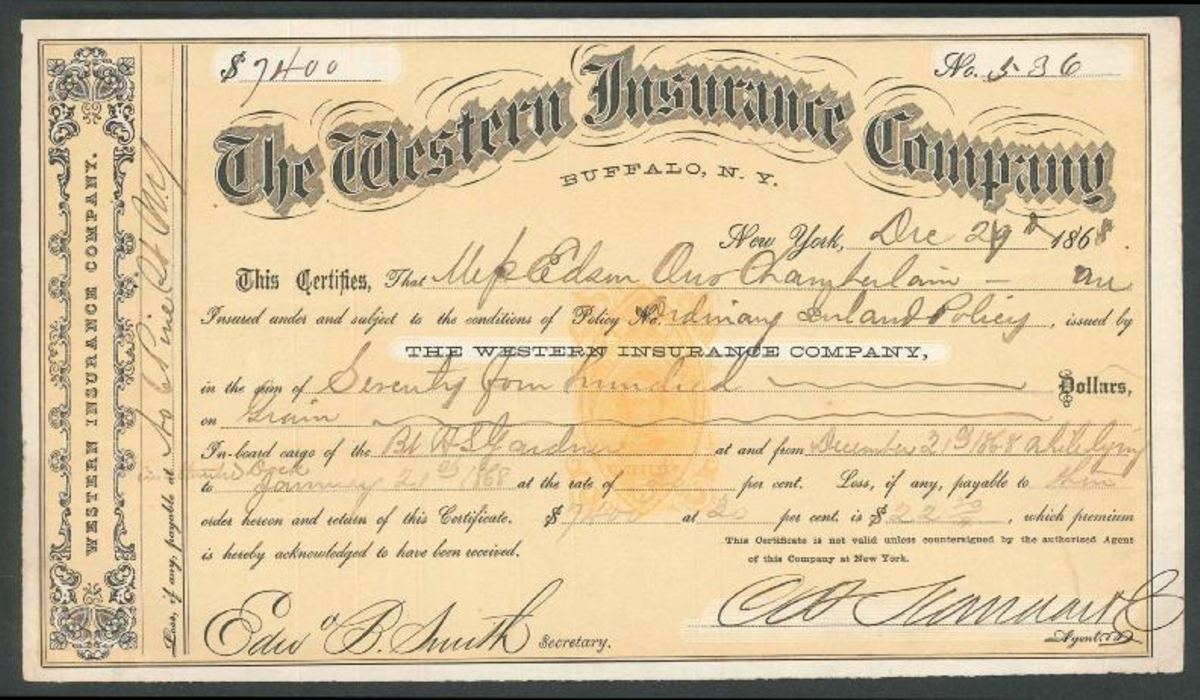 $ 7400
No. 536
The Western Insurance Company
BUFFALO, N. Y.
New York, Dec 29d 1868.
This Certifies, That Mess Edson Orvo Chamberlain — are
Insured under and subject to the conditions of Policy No. Ordinary Inland Policy, issued by
THE WESTERN INSURANCE COMPANY,
in the sum of Seventy four hundred Dollars,
on Grain
In-board cargo of the Bt H S Gardner at and from December 21st 1868 while lying
in Atlantic Dock
to January 21st 1868 at the rate of per cent. Loss, if any, payable to them
order hereon and return of this Certificate. $ 7400 at 30 per cent. is $ 22 20, which premium
is hereby acknowledged to have been received.
This Certificate is not valid unless countersigned by the authorized Agent
of this Company at New York.
Edwd B. Smith Secretary.
Agent.
WESTERN INSURANCE COMPANY.
Loss, if any, payable at No 61 Pine St N.Y